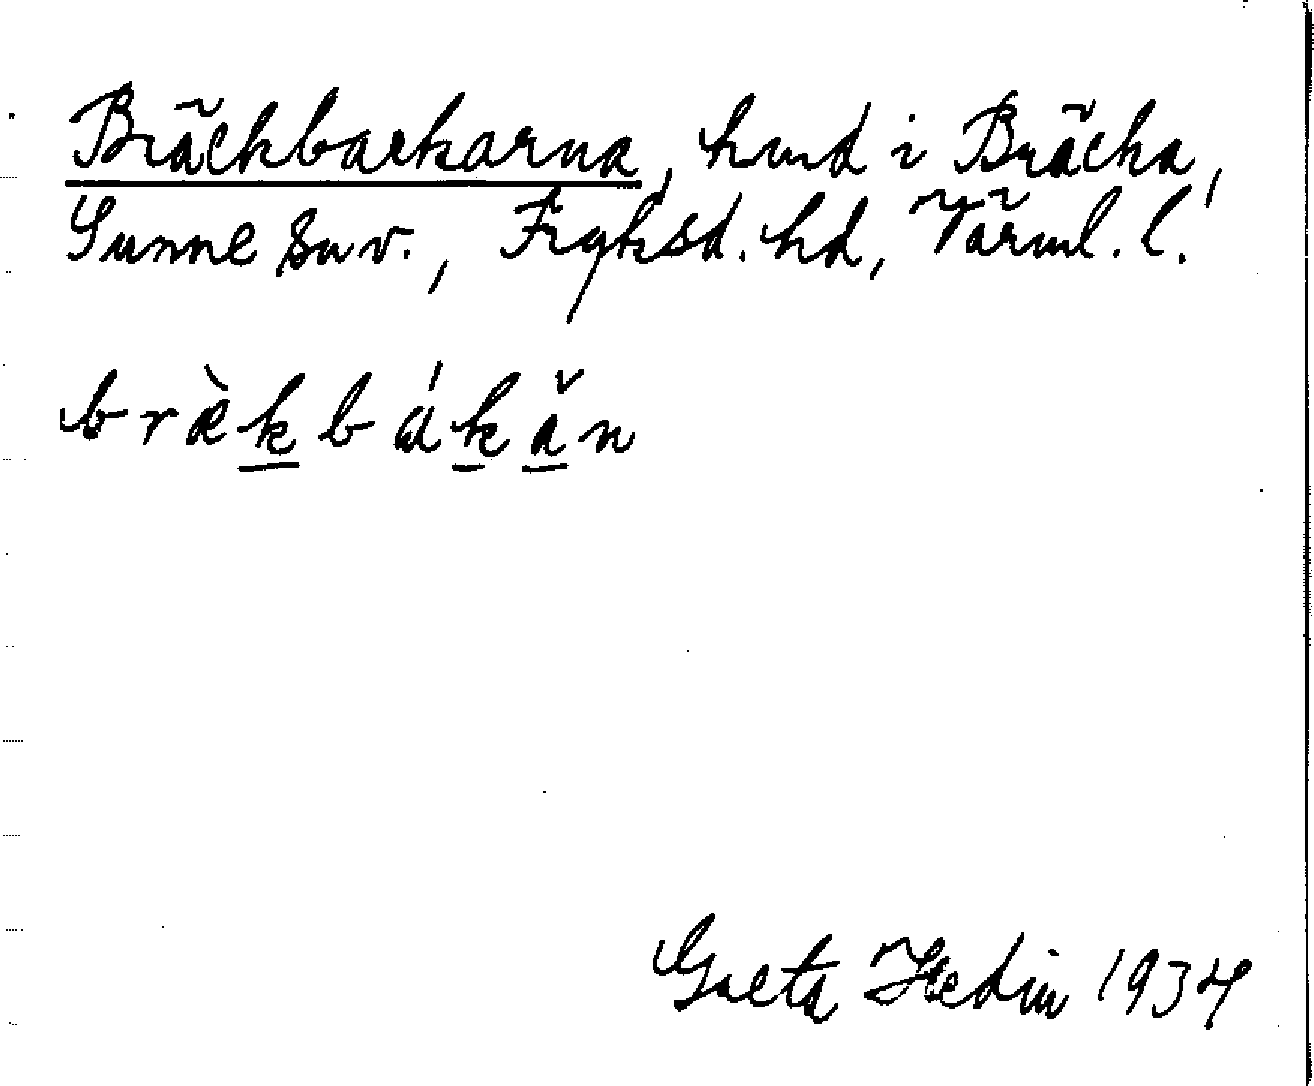 Bräckbackarna, hmd i Bräcka,
Sunne sn v., Fryksd. hd, Värml. l.
bræ̀kbákăn
Greta Hedin 1934